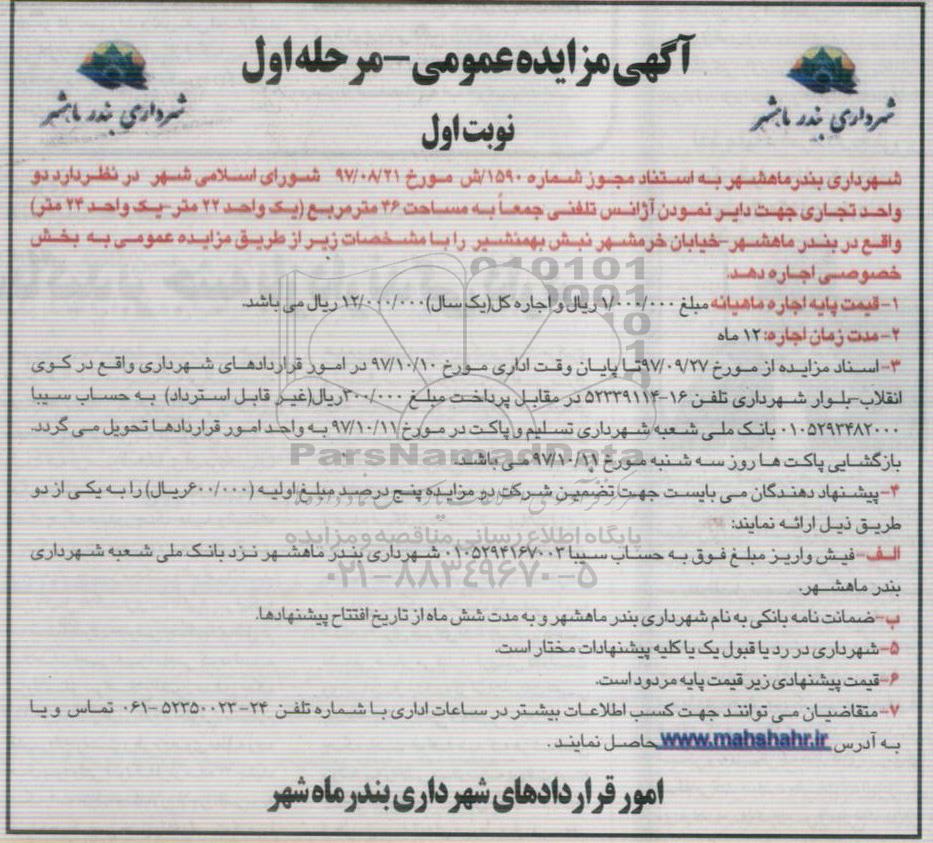 آگهی مزایده عمومی - مرحله اول
شهرداری بندر ماهشهر
شهرداری بندر ماهشهر
نوبت اول
شهرداری بندرماهشهر به استناد مجوز شماره ۱۵۹۰/ش مورخ ۹۷/۰۸/۲۱ شورای اسلامی شهر در نظردارد دو
واحد تجاری جهت دایر نمودن آژانس تلفنی جمعاً به مساحت ۴۶ مترمربع (یک واحد ۲۲ متر-یک واحد ۲۴ متر)
واقع در بندر ماهشهر-خیابان خرمشهر نبش بهمنشیر را با مشخصات زیر از طریق مزایده عمومی به بخش
خصوصی اجاره دهد.
۱-قیمت پایه اجاره ماهیانه مبلغ ۱/۰۰۰/۰۰۰ ریال و اجاره کل(یک سال) ۱۲/۰۰۰/۰۰۰ ریال می باشد.
۲-مدت زمان اجاره: ۱۲ ماه
۳-اسناد مزایده از مورخ ۹۷/۰۹/۲۷تا پایان وقت اداری مورخ ۹۷/۱۰/۱۰ در امور قراردادهای شهرداری واقع در کوی
انقلاب-بلوار شهرداری تلفن ۱۶-۵۲۳۳۹۱۱۴ در مقابل پرداخت مبلغ ۳۰۰/۰۰۰ریال(غیر قابل استرداد) به حساب سیبا
۰۱۰۵۲۹۳۴۸۲۰۰۰ بانک ملی شعبه شهرداری تسلیم و پاکت در مورخ ۹۷/۱۰/۱۱ به واحد امور قراردادها تحویل می گردد.
بازگشایی پاکت ها روز سه شنبه مورخ ۹۷/۱۰/۱۱ می باشد.
۴-پیشنهاد دهندگان می بایست جهت تضمین شرکت در مزایده پنج درصد مبلغ اولیه (۶۰۰/۰۰۰ریال) را به یکی از دو
طریق ذیل ارائه نمایند:
الف-فیش واریز مبلغ فوق به حساب سیبا ۰۱۰۵۲۹۴۱۶۷۰۰۳ شهرداری بندر ماهشهر نزد بانک ملی شعبه شهرداری
بندر ماهشهر.
ب-ضمانت نامه بانکی به نام شهرداری بندر ماهشهر و به مدت شش ماه از تاریخ افتتاح پیشنهادها.
۵-شهرداری در رد یا قبول یک یا کلیه پیشنهادات مختار است.
۶-قیمت پیشنهادی زیر قیمت پایه مردود است.
۷-متقاضیان می توانند جهت کسب اطلاعات بیشتر در ساعات اداری با شماره تلفن ۲۴-۵۲۳۵۰۰۲۳-۰۶۱ تماس و یا
به آدرس www.mahshahr.ir حاصل نمایند.
امور قراردادهای شهرداری بندر ماه شهر
ParsNamadData
پایگاه اطلاع رسانی مناقصه و مزایده
۰۲۱-۸۸۳۴۹۶۷۰-۵